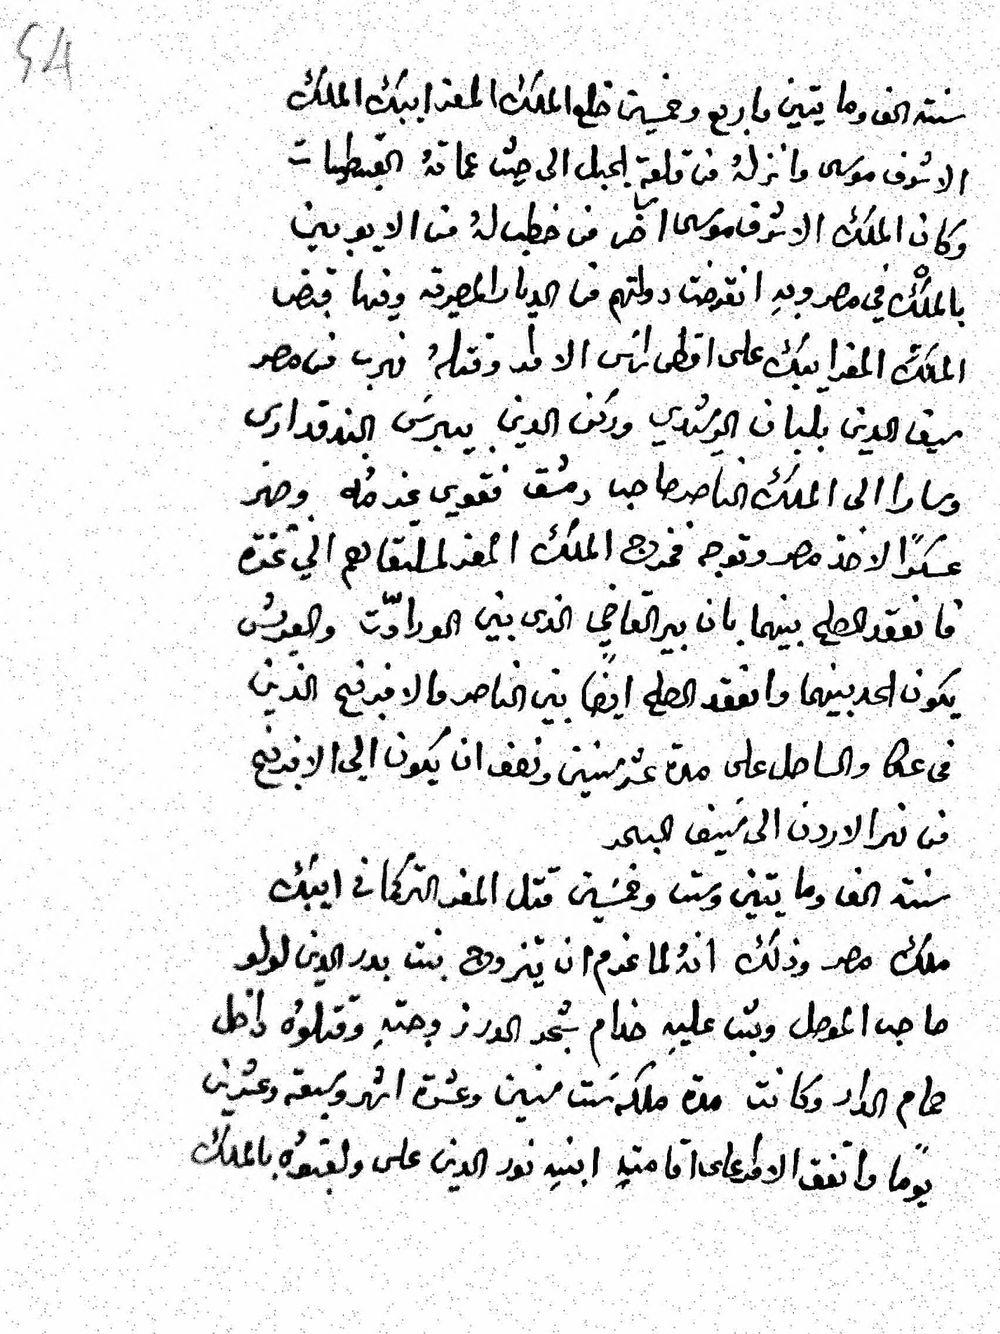 54
سنة الف ومايتين واربع وخمسين خلع الملك المعز ايبك الملك
الاشرف موسى وانزلهُ من قلعة الجبل الى حيث عماته القبطيات
وكان الملك الاشرف موسى اخر من خطب لهُ من الايوبيين
بالملك في مصر وبهِ انقرضت دولتهم من الديار المصرية وفيها قبض
الملك المعز ايبك على اقطى راس الامرا وقتلهُ فهرب من مصر
سيف الدين بلبان الرشيدي وركن الدين بيبرس البندقدارى
وسارا الى الملك الناصر صاحب دمشق فقوي بهم وجهز
عسكرًا لاخذ مصر وتوجه فخرج الملك المعز لملتقاهم الى غزة
فانعقد الصلح بينهما بان بير القاضي الذى بين الورادّت والعريش
يكون الحد بينهما وانعقد الصلح ايضًا بين الناصر والافرنج الذين
فى عكا والساحل على مدة عشر سنين ونصف ان يكون الى الافرنج
من نهر الاردن الى سيف البحر
سنة الف ومايتين وست وخمسين قتل المعز التركماني ايبك
ملك مصر وذلك انهُ لما عزم ان يتزوج بنت بدر الدين لولو
صاحب الموصل وثبت عليهِ خدام شجر الدر زوجتهِ وقتلوهُ داخل
حمام الدار وكانت مدة ملكه ست سنين وعشرة اشهر وسبعة وعشرين
يومًا واتفق الامرا على اقامة ابنهِ نور الدين على ولقبوهُ بالملك